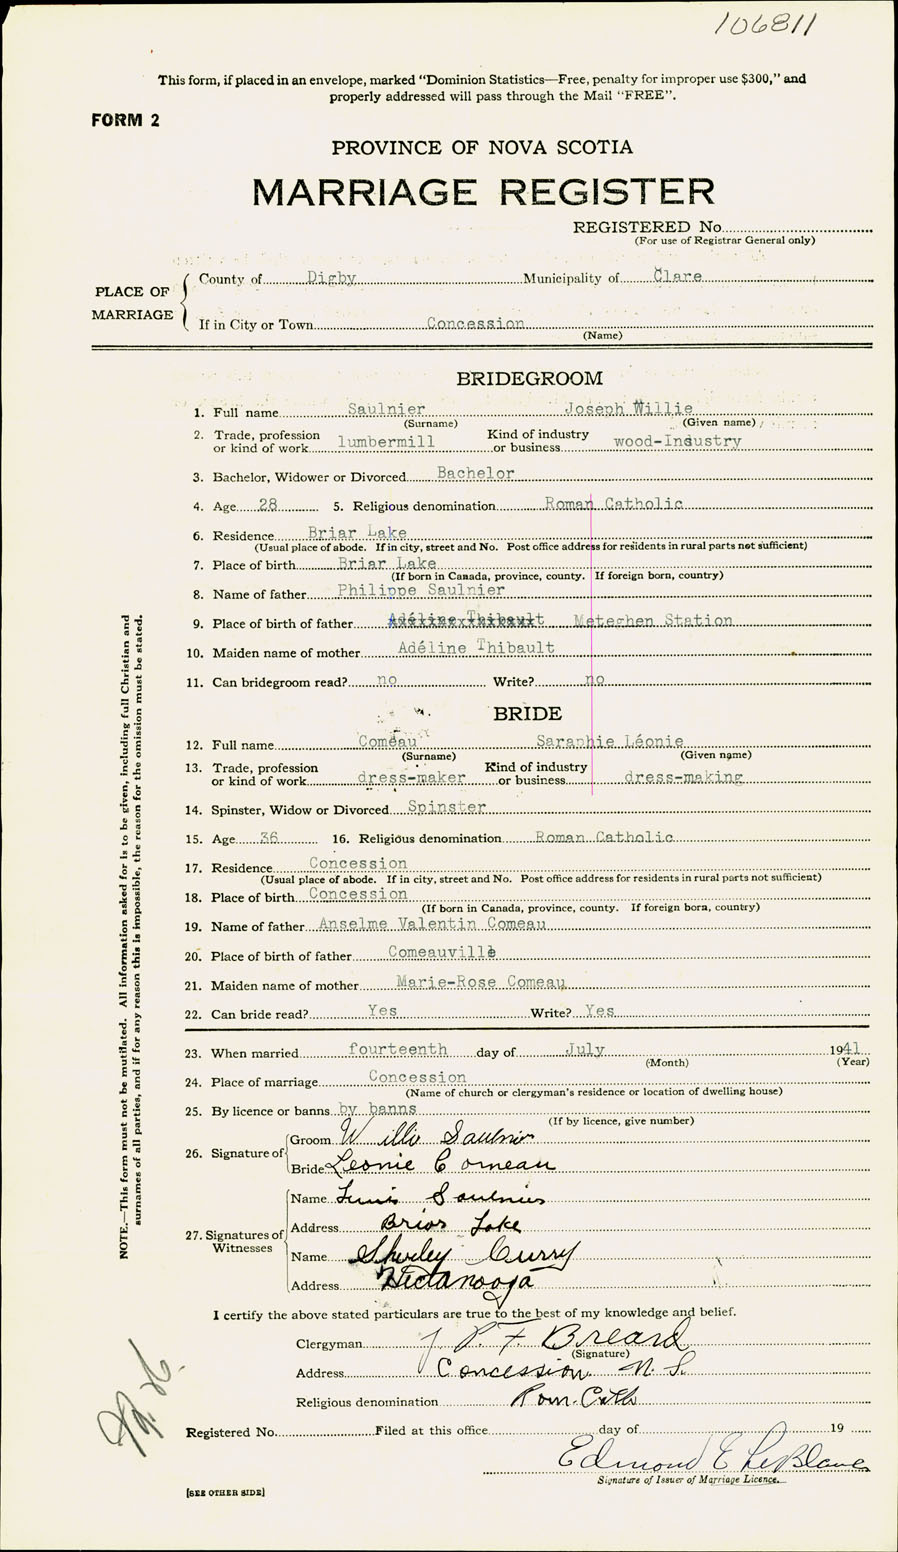 106811
This form, if placed in an envelope, marked “Dominion Statistics—Free, penalty for improper use $300,” and
properly addressed will pass through the Mail “FREE”.
FORM 2
PROVINCE OF NOVA SCOTIA
MARRIAGE REGISTER
REGISTERED No.
(For use of Registrar General only)
PLACE OF MARRIAGE
County of Digby Municipality of Clare
If in City or Town Concession
(Name)
BRIDEGROOM
1. Full name Saulnier Joseph Willie
(Surname) (Given name)
2. Trade, profession or kind of work lumbermill Kind of industry or business wood-Industry
3. Bachelor, Widower or Divorced Bachelor
4. Age 28 5. Religious denomination Roman Catholic
6. Residence Briar Lake
(Usual place of abode. If in city, street and No. Post office address for residents in rural parts not sufficient)
7. Place of birth Briar Lake
(If born in Canada, province, county. If foreign born, country)
8. Name of father Philippe Saulnier
9. Place of birth of father Adéline Thibault Meteghen Station
10. Maiden name of mother Adéline Thibault
11. Can bridegroom read? no Write? no
BRIDE
12. Full name Comeau Saraphie Léonie
(Surname) (Given name)
13. Trade, profession or kind of work dress-maker Kind of industry or business dress-making
14. Spinster, Widow or Divorced Spinster
15. Age 36 16. Religious denomination Roman Catholic
17. Residence Concession
(Usual place of abode. If in city, street and No. Post office address for residents in rural parts not sufficient)
18. Place of birth Concession
(If born in Canada, province, county. If foreign born, country)
19. Name of father Anselme Valentin Comeau
20. Place of birth of father Comeauville
21. Maiden name of mother Marie-Rose Comeau
22. Can bride read? Yes Write? Yes
23. When married fourteenth day of July 1941
(Month) (Year)
24. Place of marriage Concession
(Name of church or clergyman's residence or location of dwelling house)
25. By licence or banns by banns
(If by licence, give number)
26. Signature of
Groom Willie Saulnier
Bride Leonie Comeau
27. Signatures of Witnesses
Name Saulnier
Address Briar Lake
Name Shirley Curry
Address Hectanooga
I certify the above stated particulars are true to the best of my knowledge and belief.
Clergyman J P. F. Breard
(Signature)
Address Concession N. S.
Religious denomination Rom. Cath
Registered No. Filed at this office day of 19
Edmond E LeBlanc
Signature of Issuer of Marriage Licence.
[SEE OTHER SIDE]
NOTE.—This form must not be mutilated. All information asked for is to be given, including full Christian and
surnames of all parties, and if for any reason this is impossible, the reason for the omission must be stated.